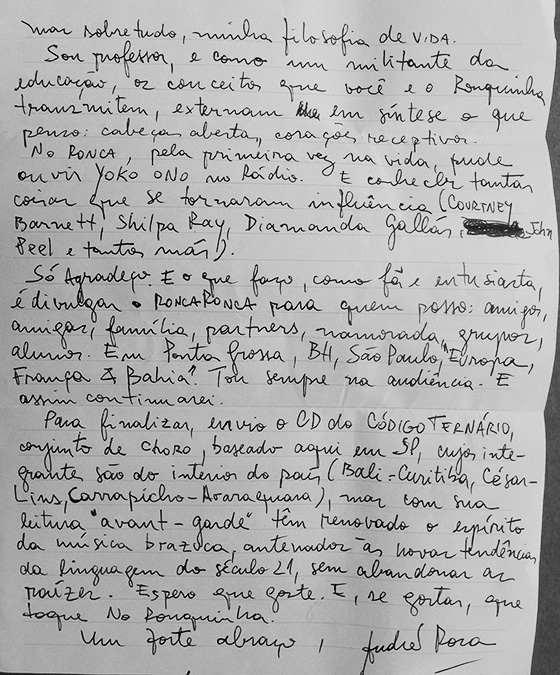 mas sobretudo, minha filosofia de VIDA.
Sou professor, e como um militante da
educação, os conceitos que você e o Ronquinha
transmitem, externam em síntese o que
penso: cabeças abertas, corações receptivos.
No RONCA, pela primeira vez na vida, pude
ouvir YOKO ONO no Rádio. E conhecer tantas
coisas que se tornaram influência (COURTNEY
Barnett, Shilpa Ray, Diamanda Gallás, John
Peel e tantos mais).
Só Agradeço. E o que faço, como fã e entusiasta,
é divulgar o RONCARONCA para quem posso: amigos,
amigas, família, partners, namorada, grupos,
alunos. Em Ponta Grossa, BH, São Paulo, "Europa,
França & Bahia". Tou sempre na audiência. E
assim continuarei.
Para finalizar, envio o CD do CÓDIGO TERNÁRIO,
conjunto de choro, baseado aqui em SP, cujos inte-
grantes são do interior do país (Bali-Curitiba, César-
Lins, Carrapicho-Araraquara), mas com sua
leitura "avant-garde" têm renovado o espírito
da música brazuca, antenados às novas tendências
da linguagem do século 21, sem abandonar as
raízes. Espero que goste. E, se gostar, que
toque No Ronquinha.
Um forte abraço, André Rosa